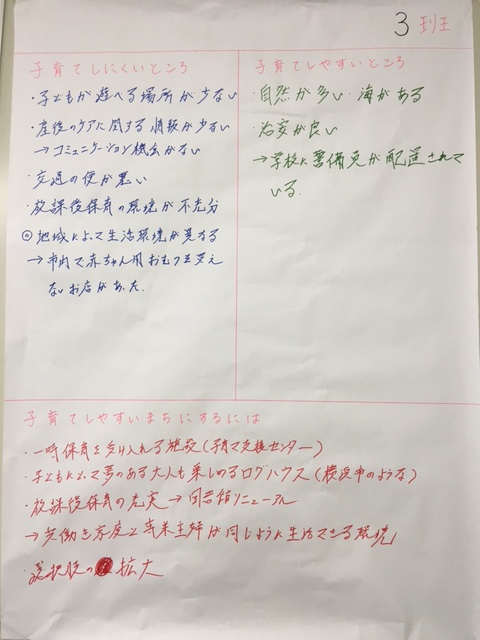 3 班
子育てしにくいところ
・子どもが遊べる場所が少ない
・産後のケアに関する情報が少ない
→コミュニケーション機会がない
・交通の便が悪い
・放課後保育の環境が不充分
◎地域によって生活環境が異なる
→市内で赤ちゃん用おむつを買え
ないお店があった.
子育てしやすいところ
・自然が多い 海がある
・治安が良い
→学校に警備員が配置されて
いる.
子育てしやすいまちにするには
・一時保育を受け入れる施設(子育て支援センター)
・子どもにとって夢のある大人も楽しめるログハウス(横浜市のような)
・放課後保育の充実→図書館リニューアル
→共働き家庭と専業主婦が同じように生活できる環境
・選択肢の拡大